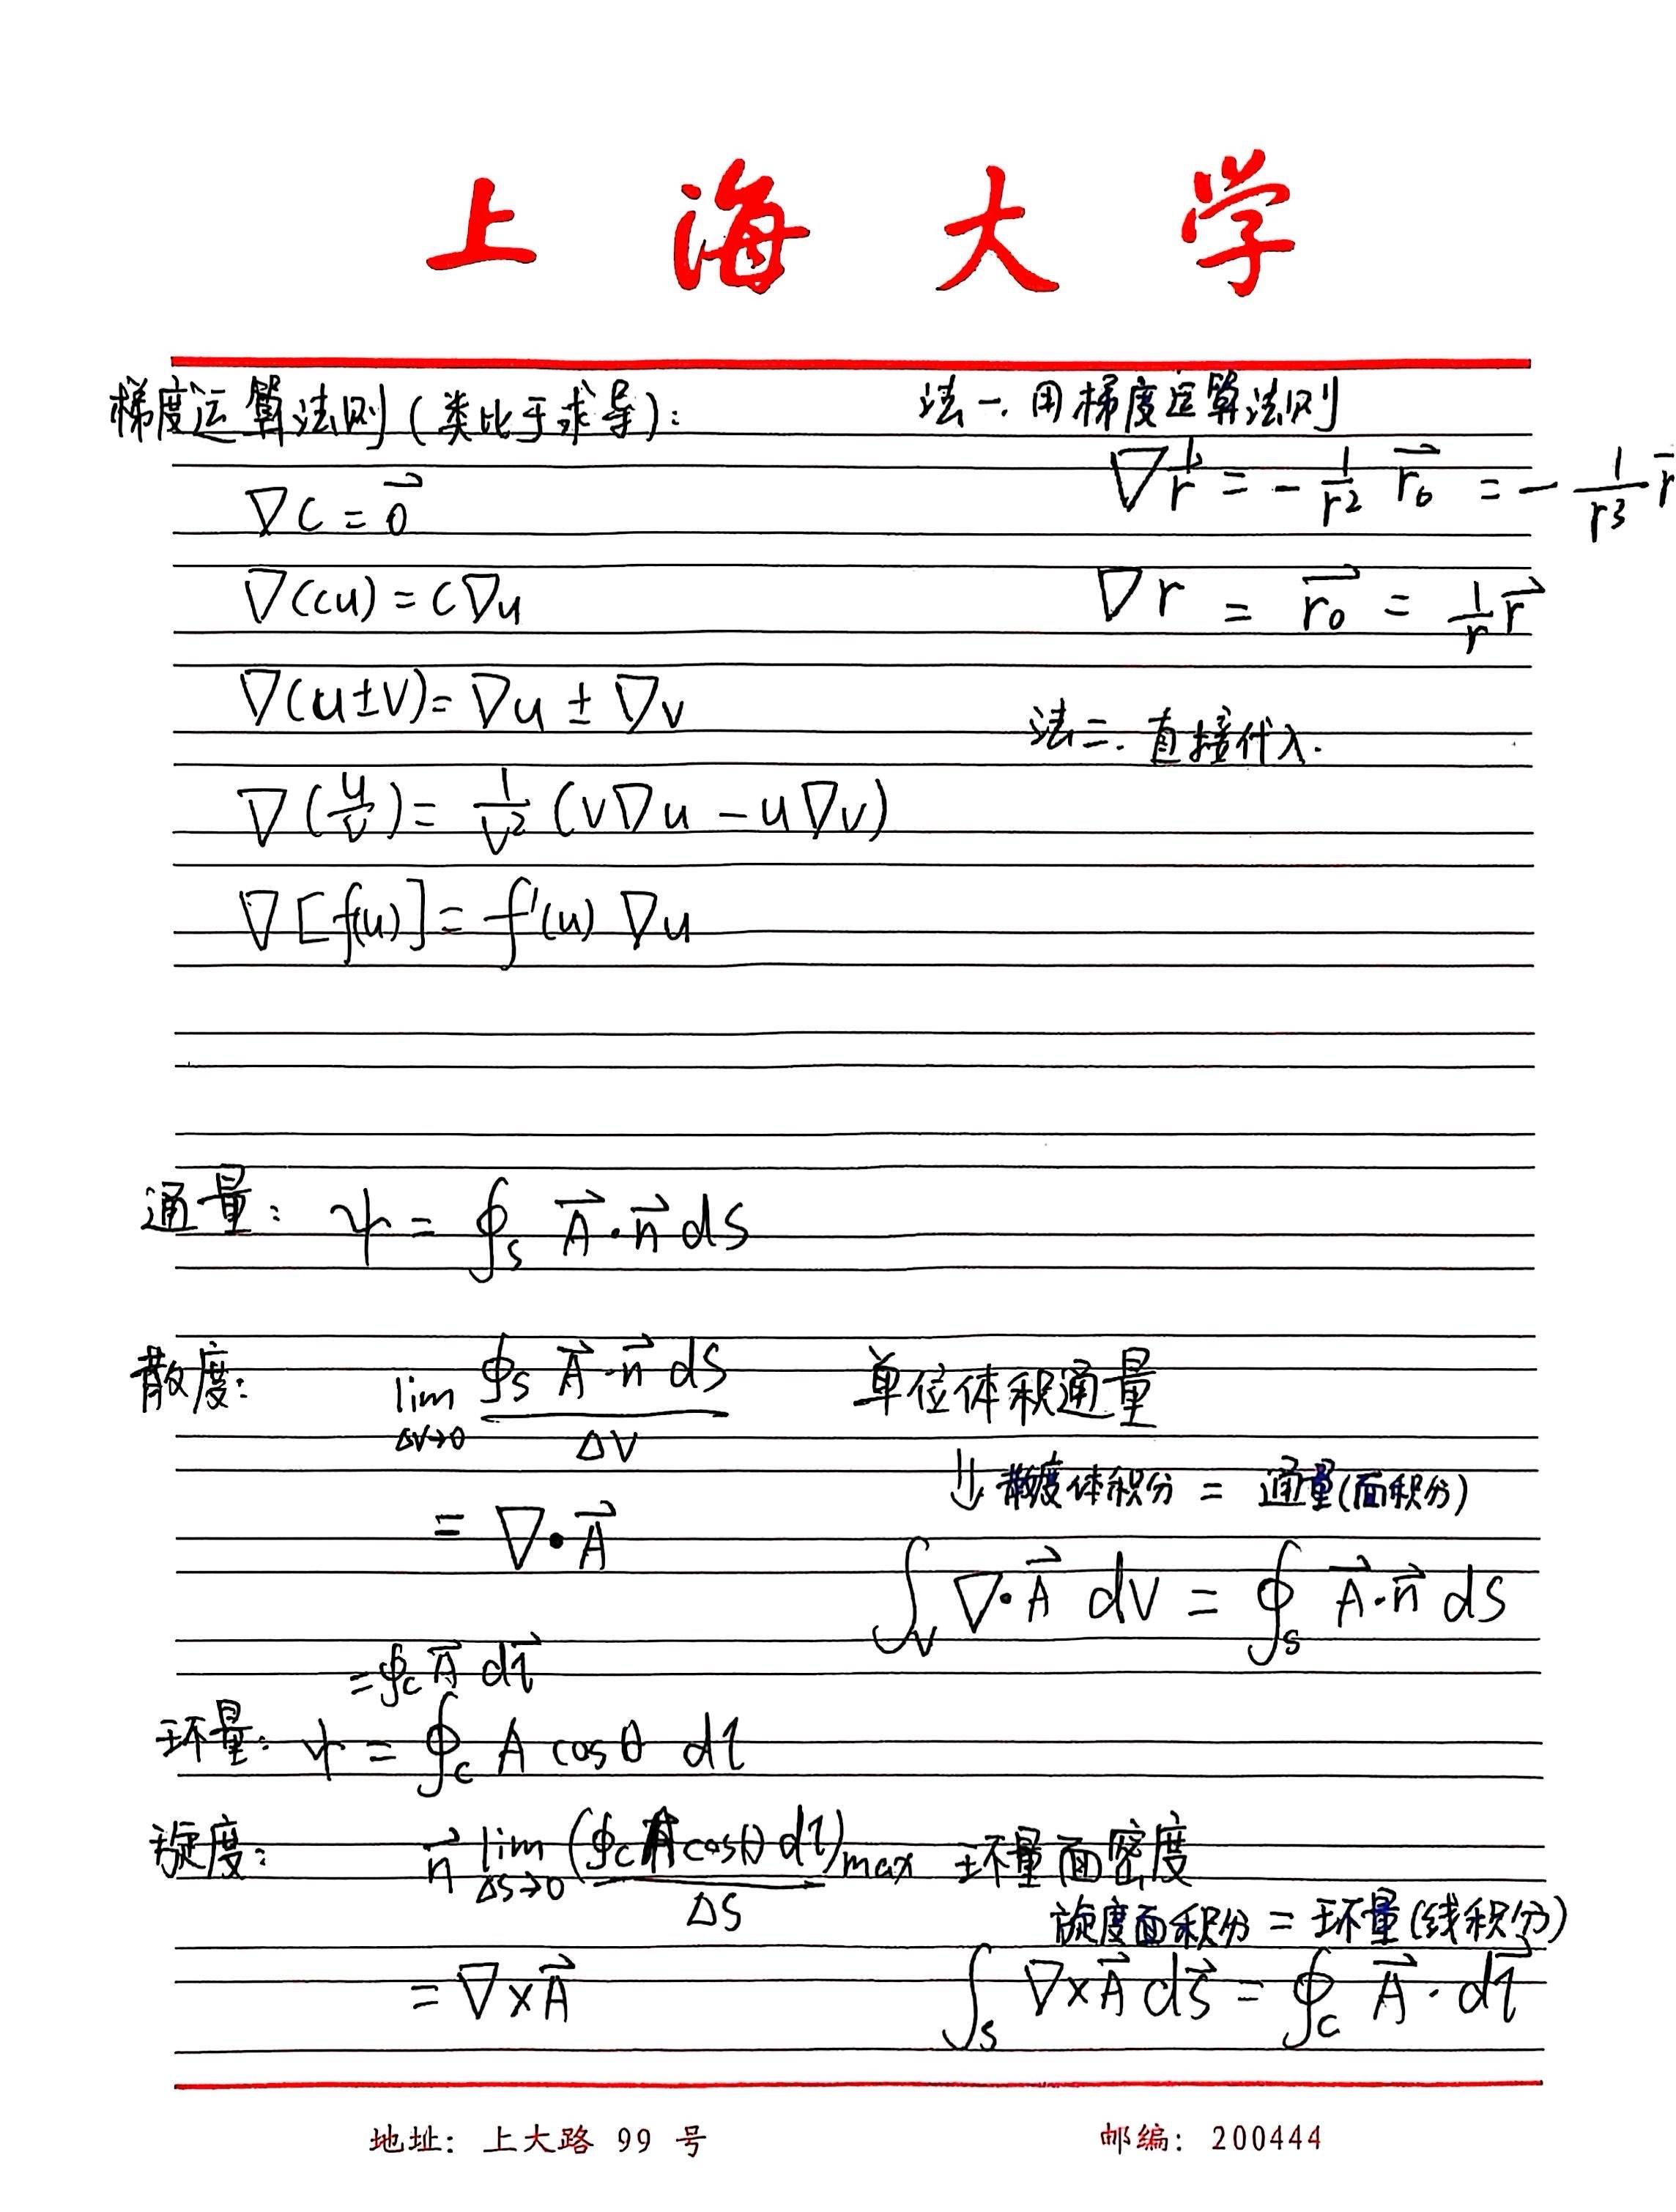 上海大学
梯度运算法则(类比于求导):
∇C = 0⃗
∇(cu) = C∇u
∇(u±v) = ∇u ± ∇v
∇(u/v) = 1/v² (v∇u − u∇v)
∇[f(u)] = f'(u) ∇u
法一. 用梯度运算法则
∇ 1/r = − 1/r² r⃗₀ = − 1/r³ r⃗
∇r = r⃗₀ = 1/r r⃗
法二. 直接代入.
通量: ψ = ∮s A⃗·n⃗ dS
散度: lim ΔV→0 ∮s A⃗·n⃗ dS / ΔV 单位体积通量
= ∇·A⃗
⇓ 散度体积分 = 通量(面积分)
∫v ∇·A⃗ dV = ∮s A⃗·n⃗ dS
= ∮c A⃗ dl⃗
环量: ψ = ∮c A cosθ dl
旋度: n⃗ lim ΔS→0 (∮c A cosθ dl)max / ΔS 环量面密度
= ∇×A⃗
旋度面积分 = 环量(线积分)
∫s ∇×A⃗ dS⃗ = ∮c A⃗·dl⃗
地址: 上大路 99 号 邮编: 200444